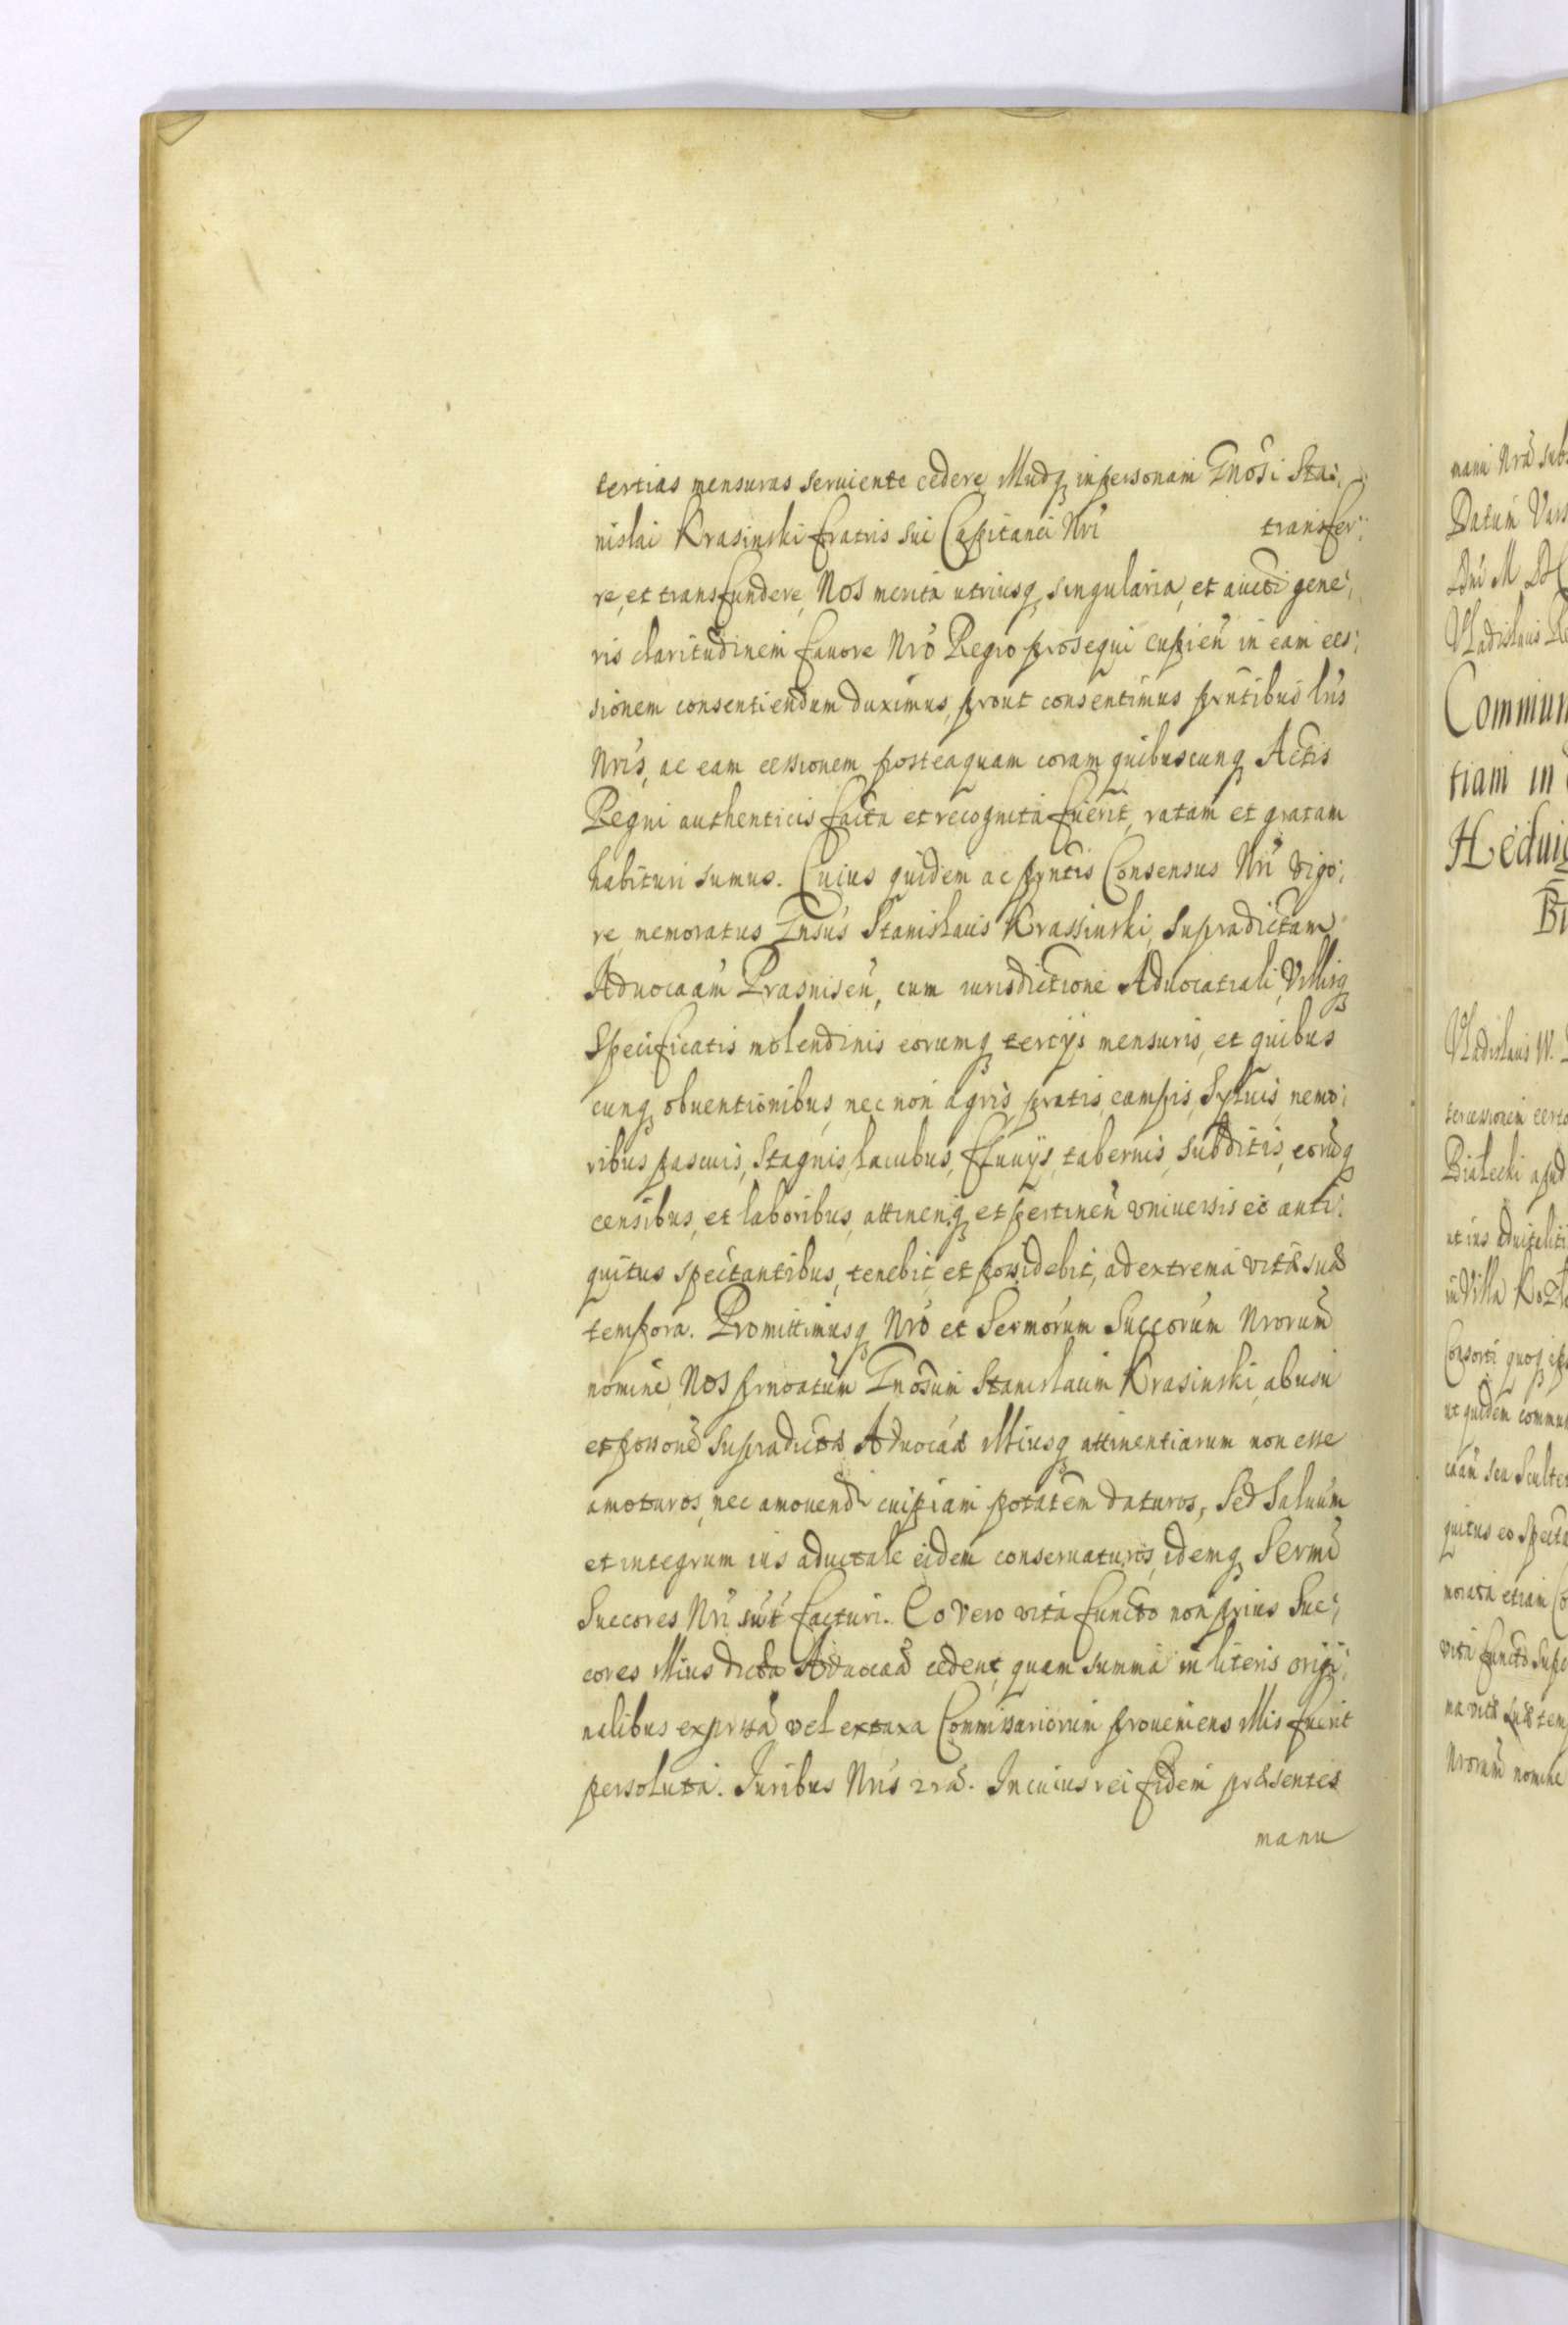 tertias mensuras seruiente cedere, Illudq in personam Gnosi Sta:
nislai Krasinski fratris sui Capitanei Nri transfer:
re, et transfundere, Nos merita utriusq singularia, et aucti gene:
ris claritudinem fauore Nro Regio prosequi cupien in eam ces:
sionem consentiendum duximus, prout consentimus pntibus lris
Nris, ac eam cessionem posteaquam coram quibuscunq Actis
Regni authenticis facta et recognita fuerit, ratam et gratam
habituri sumus. Cuius quidem ac pntis Consensus Nri vigo:
re memoratus Gnsus Stanislaus Krassinski, supradictam
Aduocaam Prasnisen, cum iurisdictione Aduocatiali, Villisq
specificatis molendinis eorumq tertijs mensuris, et quibus
cunq obuentionibus, nec non agris, pratis, campis, Syluis, nemo:
ribus pascuis, Stagnis, lacubus, fluuijs, tabernis, subditis, eorudq
censibus, et laboribus, attinenq et pertinen vniuersis eo anti:
quitus spectantibus, tenebit et possidebit, ad extrema vitæ suæ
tempora. Promittimusq Nro et Sermorum Succorum Nrorum
nomine, Nos prnoatum Gnosum Stanislaum Krasinski, ab usu
et possone supradictæ Aduocaæ illiusq attinentiarum non esse
amoturos, nec amouendi cuipiam potatem daturos, Sed Saluum
et integrum ius aduitale eidem conseruaturos, idemq Sermi
Succores Nri sut facturi. Eo vero vita functo non prius Suc:
cores illius dicta Aduocaa cedent, quam summa in literis origi:
nalibus expressa vel ex taxa Commissariorum proueniens illis fuerit
persoluta. Iuribus Nris rra. In cuius rei fidem præsentes
manu
manu Nra sub
Datum Vars
Dni M DC
Vladislaus Re
Commun
tiam in
Heduig
Bi
Vladislaus IV.
tercessionem certo
Białecki apud
ut ius aduitaliti
in Villa Kozło
Consorti quoq ips
ut quidem commun
caam seu Sculte
quitus eo specta
morata etiam Co
vita functo supe
ma vitæ suæ tem
Nrorum nomine